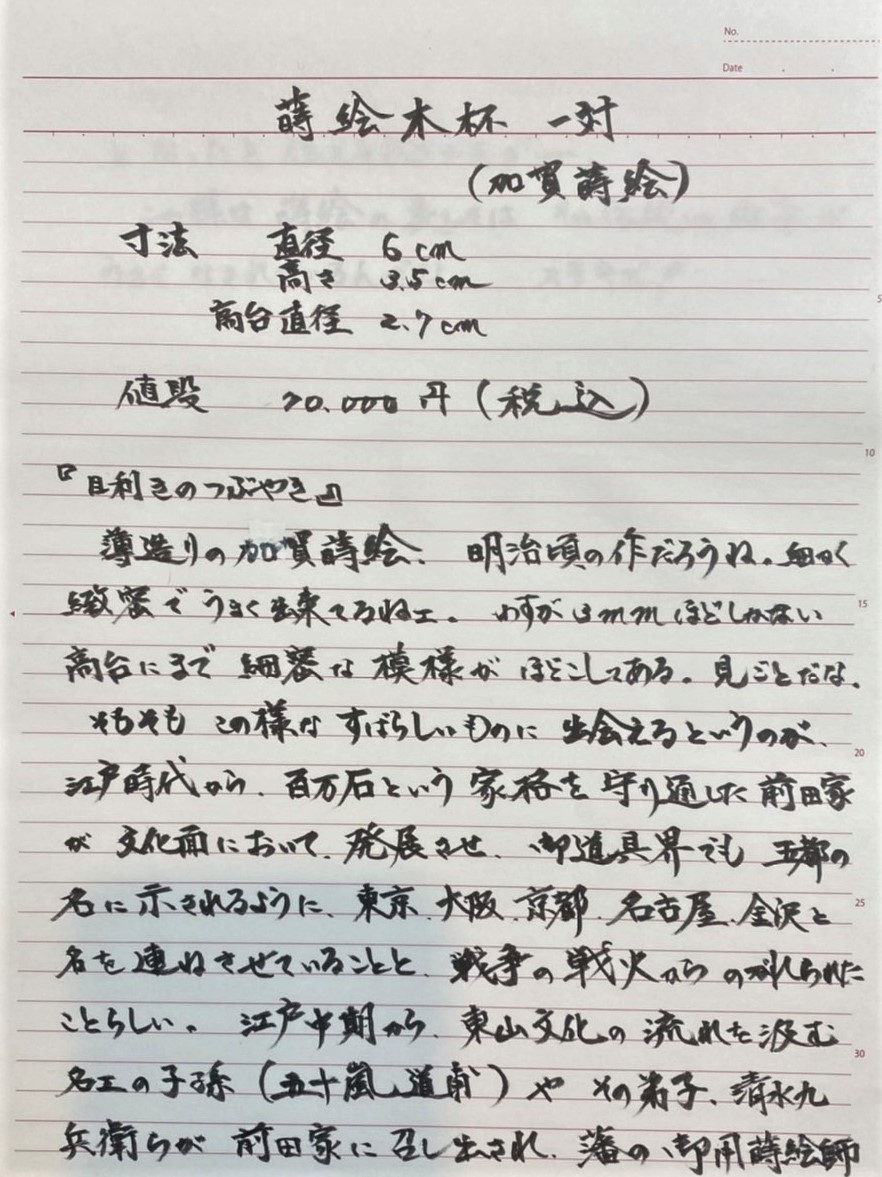 No.
Date
蒔絵木杯 一対
(加賀蒔絵)
寸法 直径 6cm
高さ 3.5cm
高台直径 2.7cm
値段 20.000円(税込)
『目利きのつぶやき』
薄造りの加賀蒔絵、明治頃の作だろうね。細かく
緻密でうまく出来てるねェ。わずか3mmほどしかない
高台にまで細密な模様がほどこしてある。見ごとだな。
そもそもこの様なすばらしいものに出会えるというのが、
江戸時代から、百万石という家格を守り通した前田家
が文化面において、発展させ、御道具界でも五都の
名に示されるように、東京、大阪、京都、名古屋、金沢と
名を連ねさせていることと、戦争の戦火からのがれられた
ことらしい。江戸中期から、東山文化の流れを汲む
名工の子孫(五十嵐道甫)やその弟子、清水九
兵衛らが前田家に召し出され、藩の御用蒔絵師
5
10
15
20
25
30